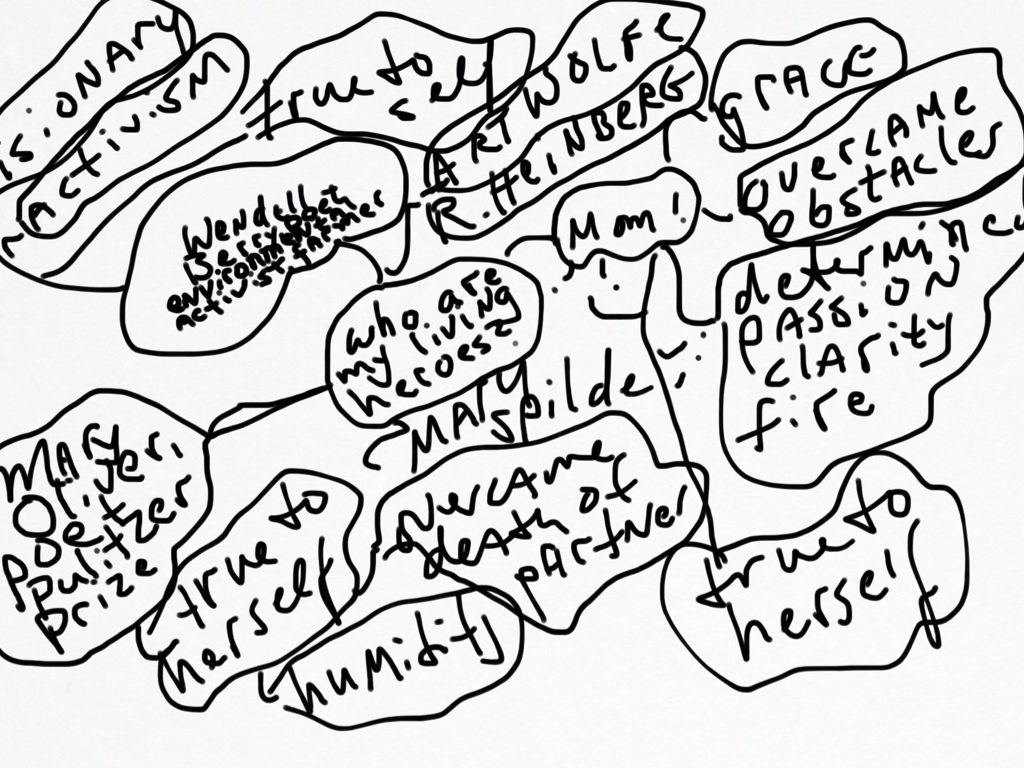 isionary
Activism
true to
self
Art Wolfe
R. Heinberg
grace
overcame
obstacles
Wendell
Berry poet
environment
activist farmer
Mom!
who are
my living
heroes?
determined
passion
clarity
fire
Mary
pilde
Mary
Oliver,
poet
pulitzer
prize
true to
herself
overcame
death of
partner
humility
true to
herself